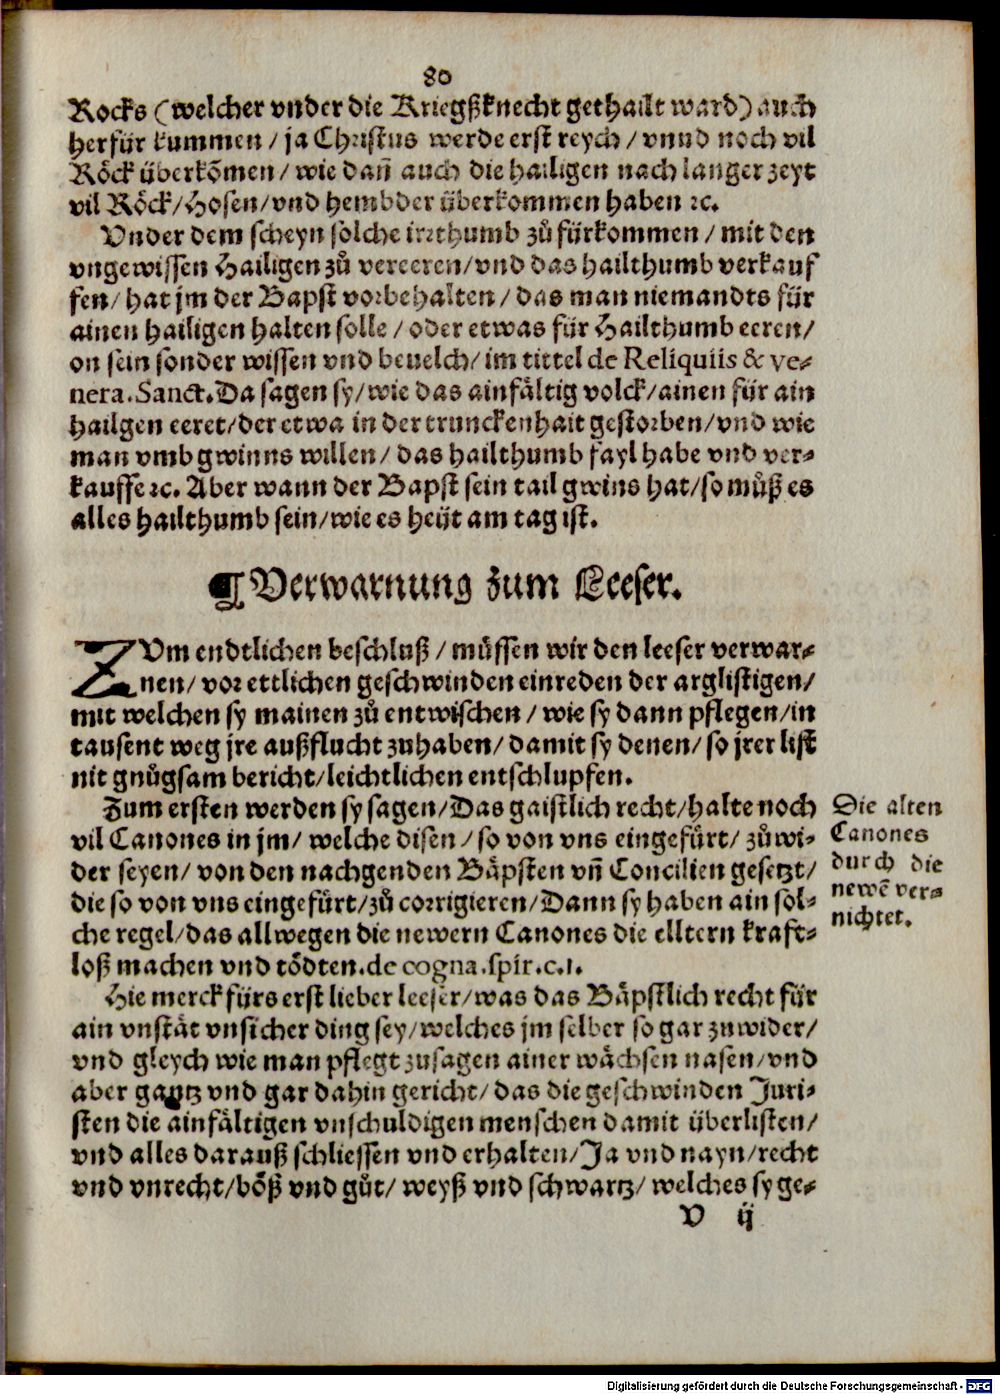 80
Rocks (welcher vnder die Kriegßknecht gethailt ward) auch
herfür kummen / ja Christus werde erst reych / vnnd noch vil
Röck überkõmen / wie dañ auch die hailigen nach langer zeyt
vil Röck / Hosen / vnd hembder überkommen haben ꝛc.
Vnder dem scheyn solche irrthumb zů fürkommen / mit den
vngewissen Hailigen zů vereeren / vnd das hailthumb verkauf
fen / hat jm der Bapst vorbehalten / das man niemandts für
ainen hailigen halten solle / oder etwas für Hailthumb eeren /
on sein sonder wissen vnd beuelch / im tittel de Reliquiis & ve⸗
nera. Sanct. Da sagen sy / wie das ainfältig volck / ainen für ain
hailgen eeret / der etwa in der trunckenhait gestorben / vnd wie
man vmb gwinns willen / das hailthumb fayl habe vnd ver⸗
kauffe ꝛc. Aber wann der Bapst sein tail gwins hat / so můß es
alles hailthumb sein / wie es heüt am tag ist.
¶ Verwarnung zum Leeser.
ZVm endtlichen beschluß / müssen wir den leeser verwar⸗
nen / vor ettlichen geschwinden einreden der arglistigen /
mit welchen sy mainen zů entwischen / wie sy dann pflegen / in
tausent weg jre außflucht zuhaben / damit sy denen / so jrer list
nit gnůgsam bericht / leichtlichen entschlupfen.
Zum ersten werden sy sagen / Das gaistlich recht / halte noch
vil Canones in jm / welche disen / so von vns eingefürt / zůwi⸗
der seyen / von den nachgenden Bäpsten vñ Concilien gesetzt /
die so von vns eingefürt / zů corrigieren / Dann sy haben ain sol⸗
che regel / das allwegen die newern Canones die elltern kraft⸗
loß machen vnd tödten. de cogna. spir. c. 1.
Die alten
Canones
durch die
newẽ ver⸗
nichtet.
Hie merck fürs erst lieber leeser / was das Bäpstlich recht für
ain vnstät vnsicher ding sey / welches jm selber so gar zuwider /
vnd gleych wie man pflegt zusagen ainer wächsen nasen / vnd
aber gantz vnd gar dahin gericht / das die geschwinden Juri⸗
sten die ainfältigen vnschuldigen menschen damit überlisten /
vnd alles darauß schliessen vnd erhalten / Ja vnd nayn / recht
vnd vnrecht / böß vnd gůt / weyß vnd schwartz / welches sy ge⸗
V ij
Digitalisierung gefördert durch die Deutsche Forschungsgemeinschaft - DFG